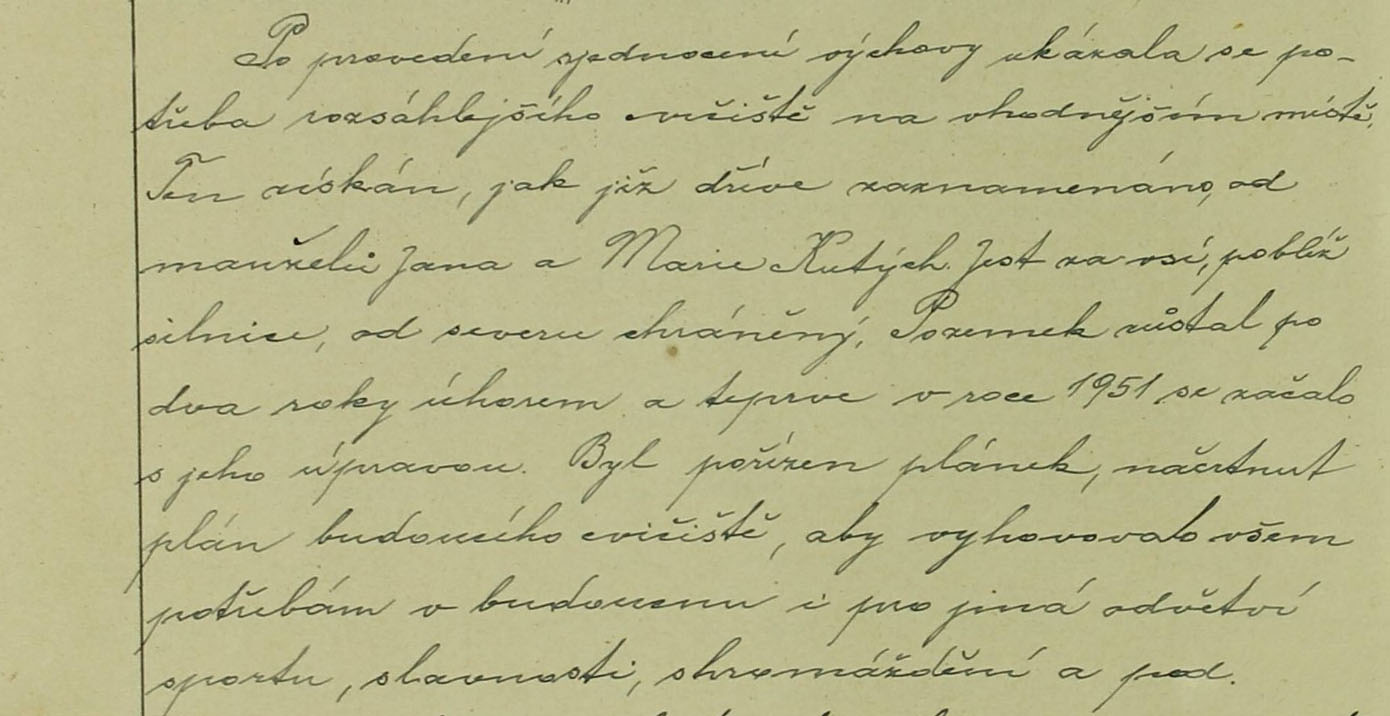 Po provedení sjednocení výchovy ukázala se po-
třeba rozsáhlejšího cvičiště na vhodnějším místě.
Ten získán, jak již dříve zaznamenáno, od
manželů Jana a Marie Kutých. Jest za vsí, poblíž
silnice, od severu chráněný. Pozemek zůstal po
dva roky úhorem a teprve v roce 1951 se začalo
s jeho úpravou. Byl pořízen plánek, načrtnut
plán budoucího cvičiště, aby vyhovovalo všem
potřebám v budoucnu i pro jiná odvětví
sportu, slavnosti, shromáždění a pod.